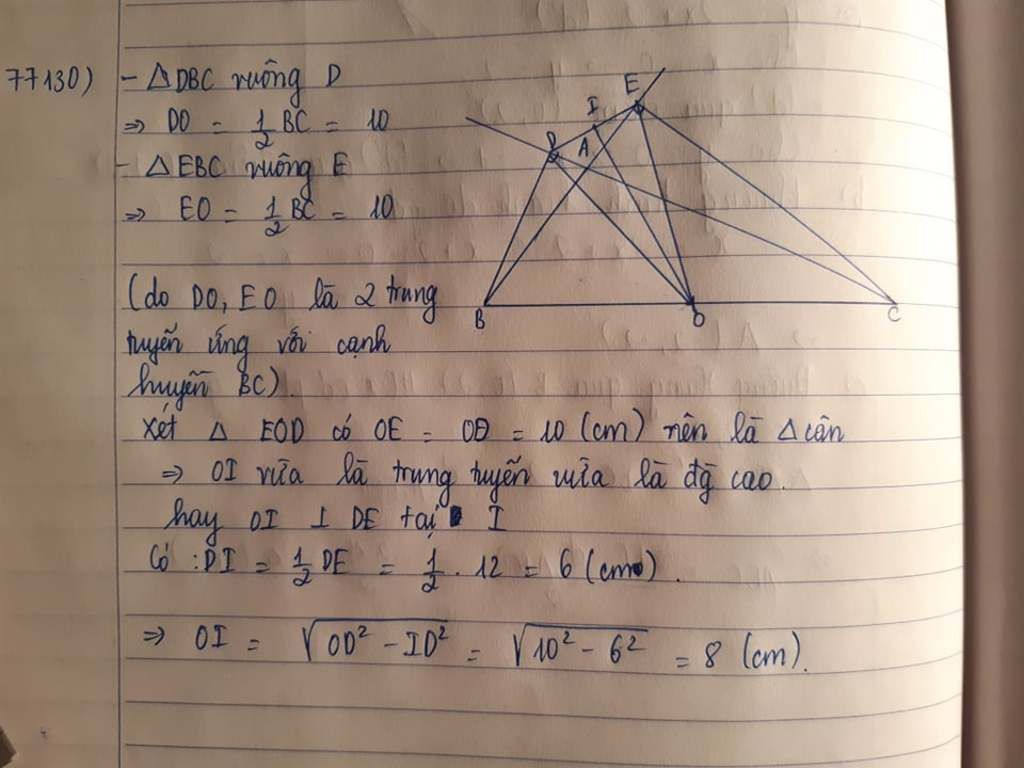 77130) - △DBC vuông D
⇒ DO = 1/2 BC = 10
- △EBC vuông E
⇒ EO = 1/2 BC = 10
(do DO, EO là 2 trung
tuyến ứng với cạnh
huyền BC).
Xét △ EOD có OE = OD = 10 (cm) nên là △ cân
⇒ OI vừa là trung tuyến vừa là đg cao.
hay OI ⊥ DE tại I
Có : DI = 1/2 DE = 1/2 . 12 = 6 (cm).
⇒ OI = √(OD² - ID²) = √(10² - 6²) = 8 (cm).
E
I
D
A
B
O
C